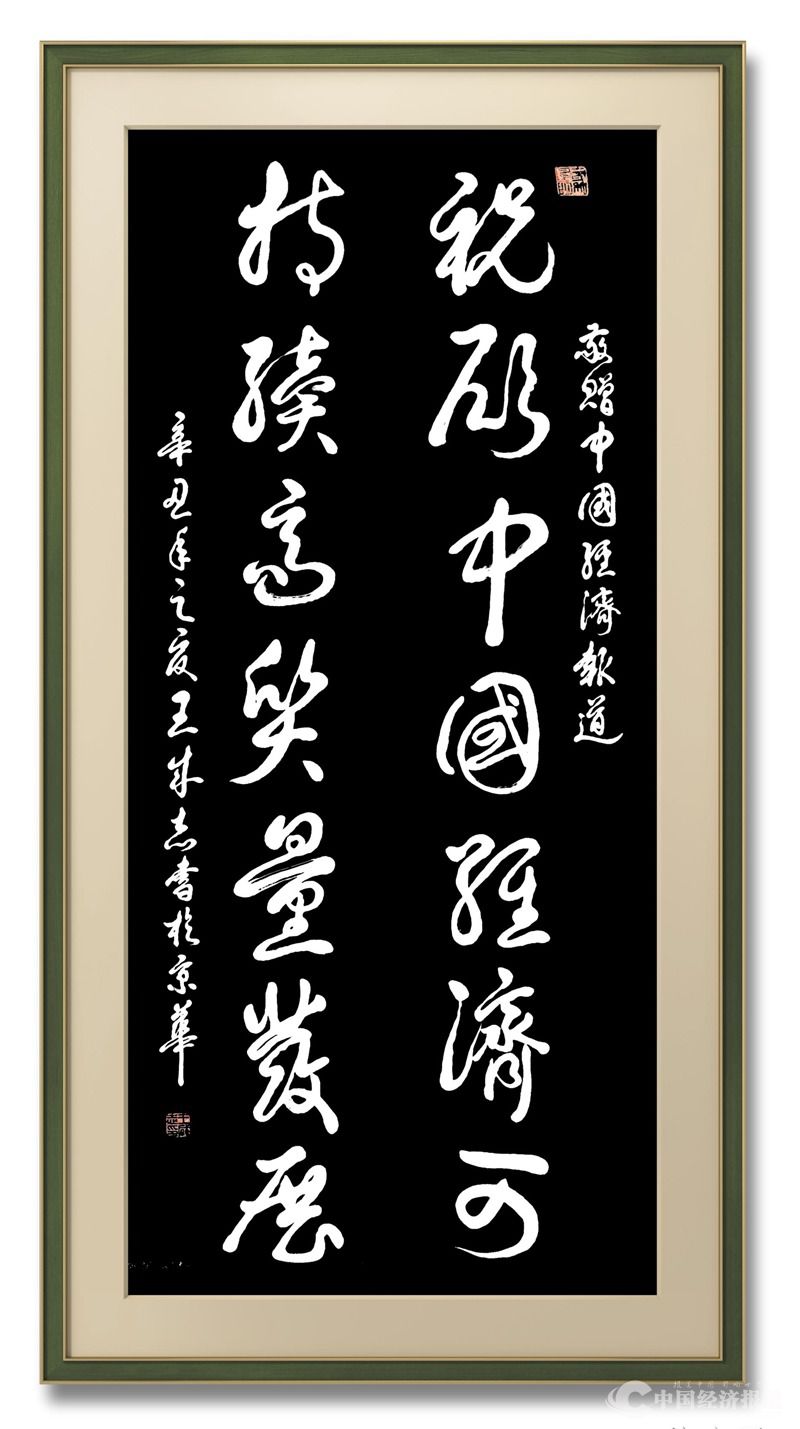 敬贈中國經濟報道
祝願中國經濟可
持續高質量發展
辛丑年之夏王成志書於京華
中国经济报